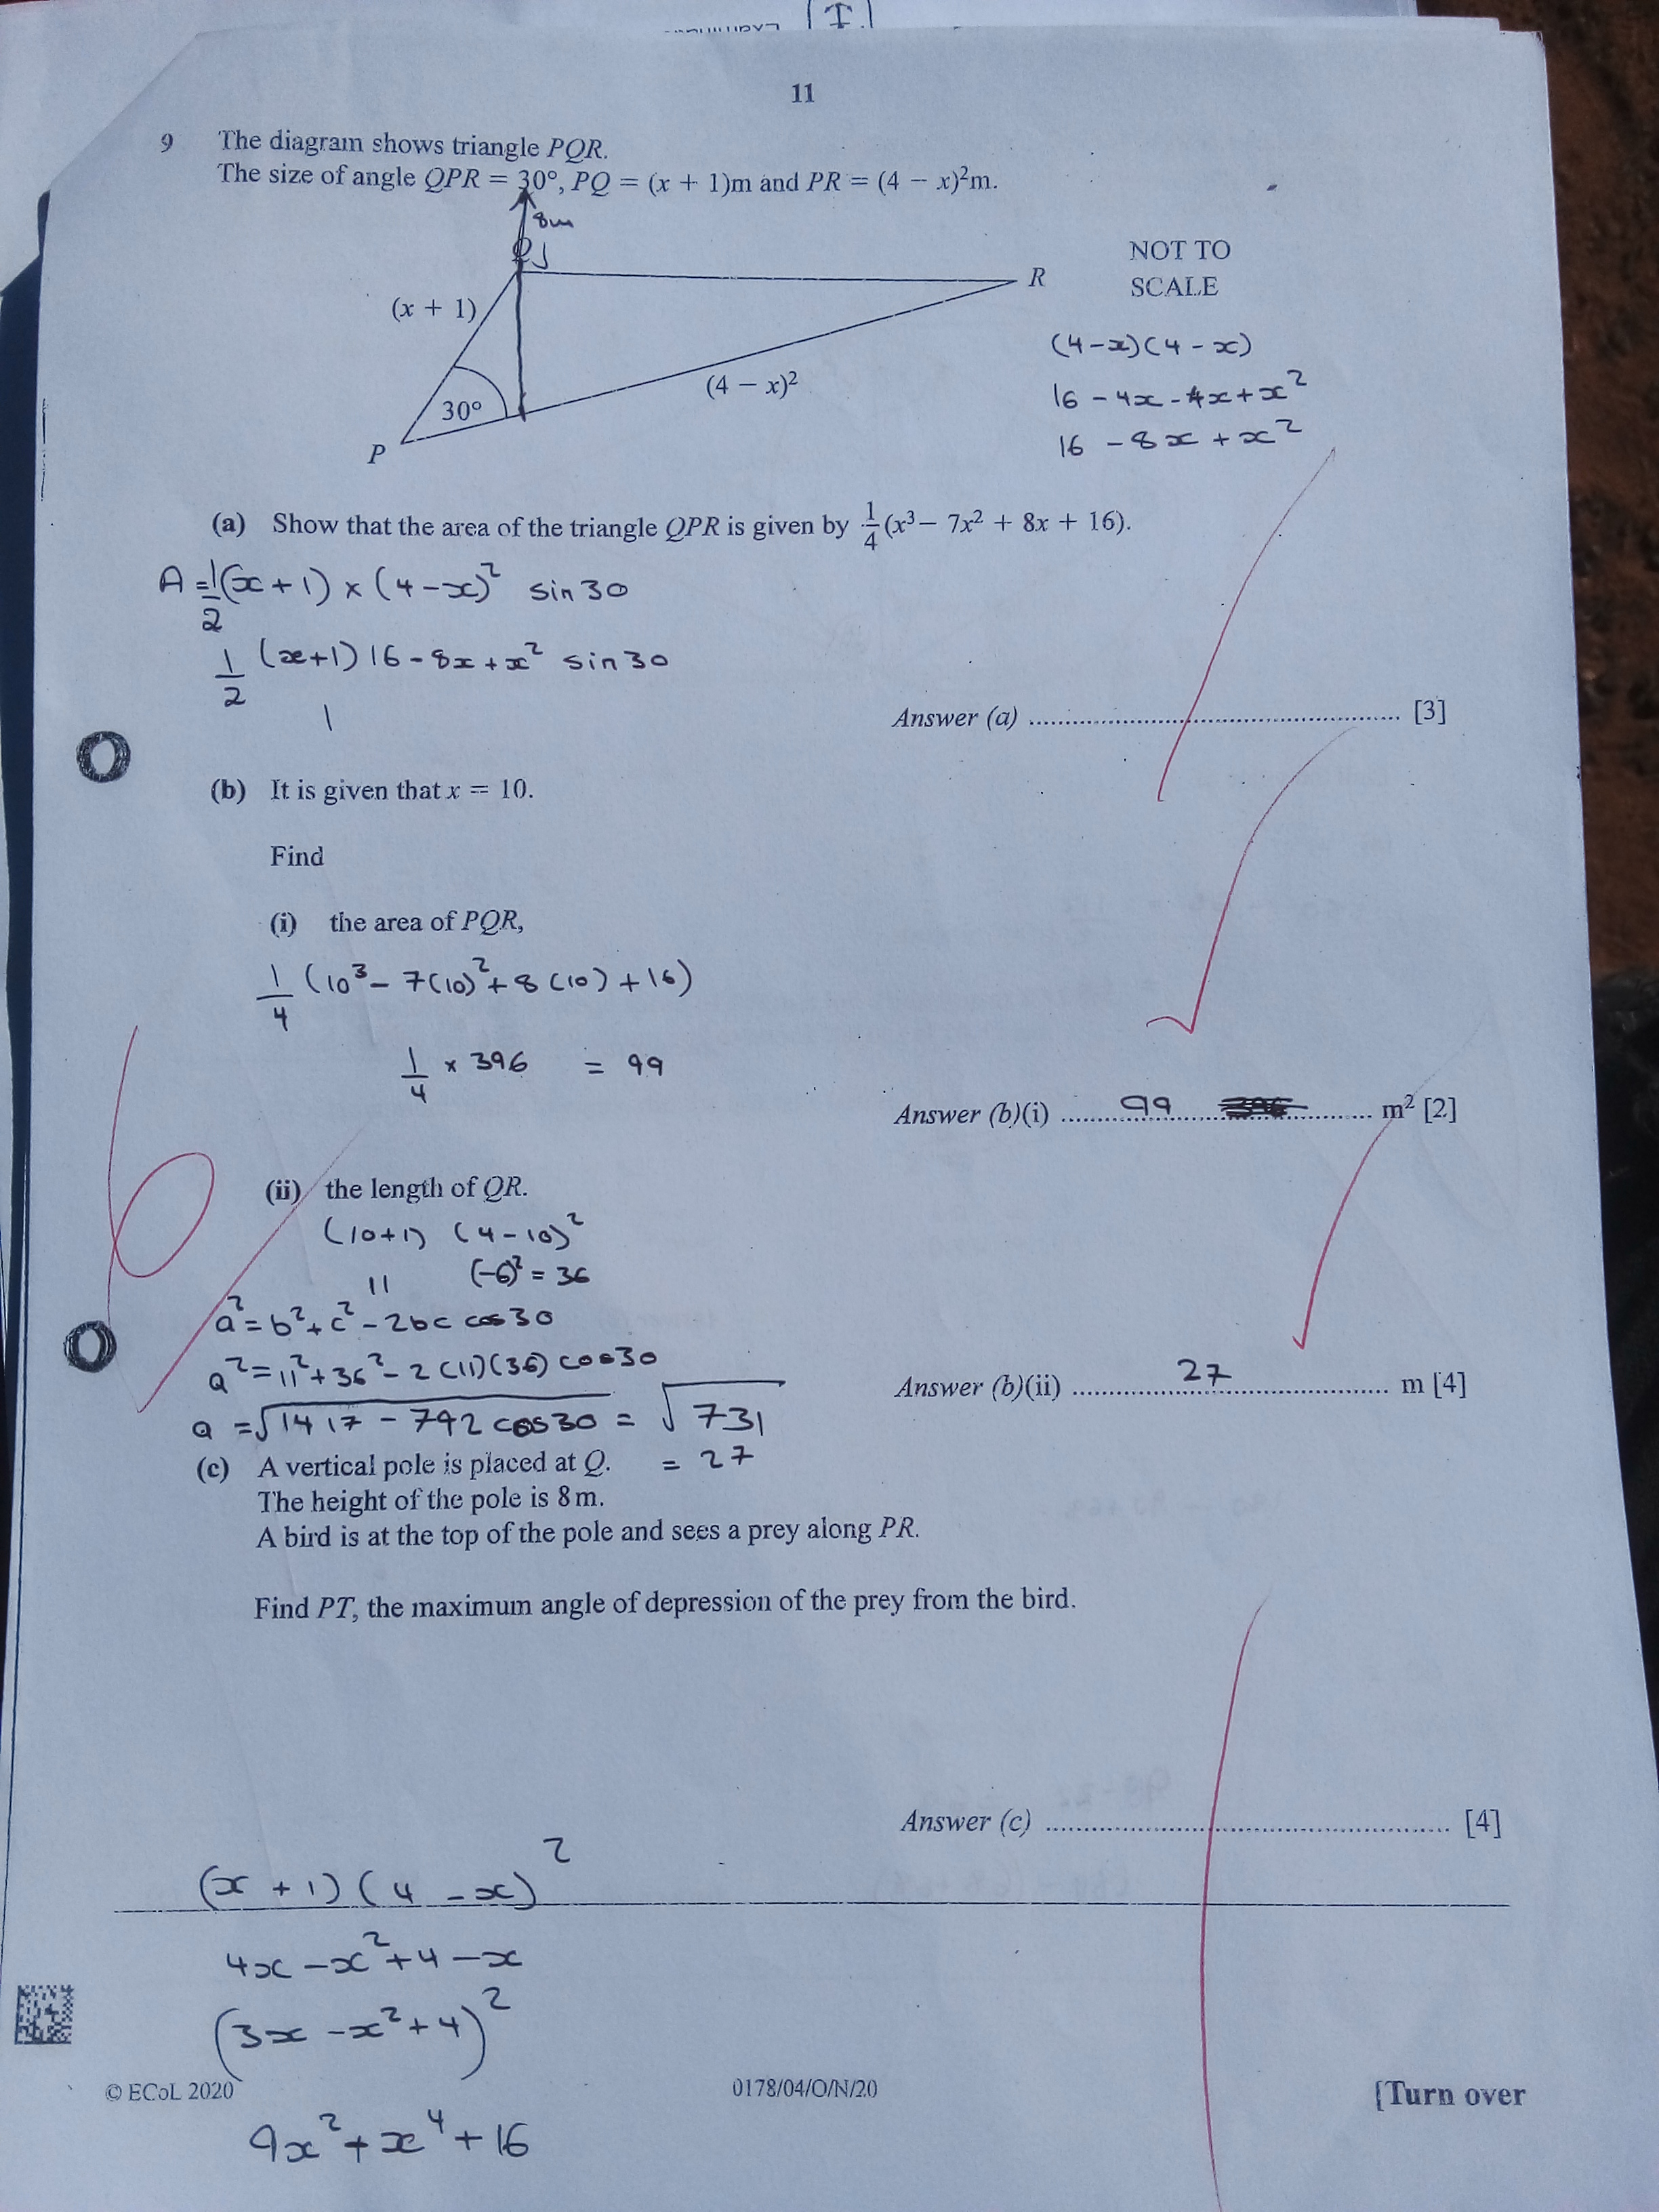 11
9 The diagram shows triangle PQR.
The size of angle QPR = 30°, PQ = (x + 1)m and PR = (4 − x)²m.
8m
Q
R
NOT TO
SCALE
(x + 1)
(4 − x)²
30°
P
(4-x)(4-x)
16 - 4x - 4x + x²
16 - 8x + x²
(a) Show that the area of the triangle QPR is given by 1/4(x³ − 7x² + 8x + 16).
A = 1/2(x+1) × (4-x)² sin30
1/2 (x+1) 16-8x+x² sin30
Answer (a) .......... [3]
(b) It is given that x = 10.
Find
(i) the area of PQR,
1/4 (10³ - 7(10)² + 8(10) + 16)
1/4 × 396 = 99
Answer (b)(i) .......... 99 .......... m² [2]
6
(ii) the length of QR.
(10+1) (4-10)²
11 (-6)² = 36
a² = b² + c² - 2bc cos30
a² = 11² + 36² - 2(11)(36) cos30
Answer (b)(ii) .......... 27 .......... m [4]
a = √1417 - 792 cos30 = √731
= 27
(c) A vertical pole is placed at Q.
The height of the pole is 8m.
A bird is at the top of the pole and sees a prey along PR.
Find PT, the maximum angle of depression of the prey from the bird.
Answer (c) .......... [4]
(x + 1)(4 - x)²
4x - x² + 4 - x
(3x - x² + 4)²
© ECoL 2020 0178/04/O/N/20 [Turn over
9x² + x⁴ + 16